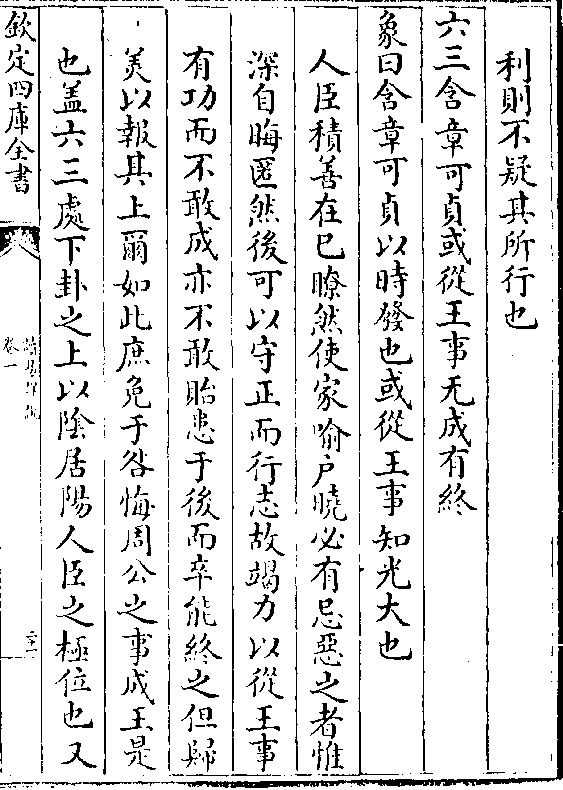 利則不疑其所行也
六三含章可貞或從王事无成有終
象曰含章可貞以時發也或從王事知光大也
人臣積善在已瞭然使家喻户曉必有忌惡之者惟
深自晦匿然後可以守正而行志故竭力以從王事
有功而不敢成亦不敢貽患于後而卒能終之但歸
羙以報其上爾如此庶免于咎悔周公之事成王是
也盖六三處下卦之上以陰居陽人臣之極位也又
欽定四庫全書
卷一